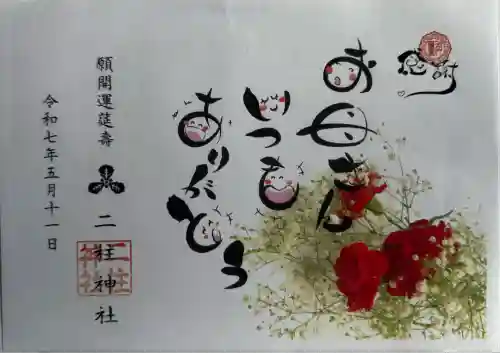 感謝
お母さん
いつも
ありがとう
願開運延壽
二柱神社
令和七年五月十一日